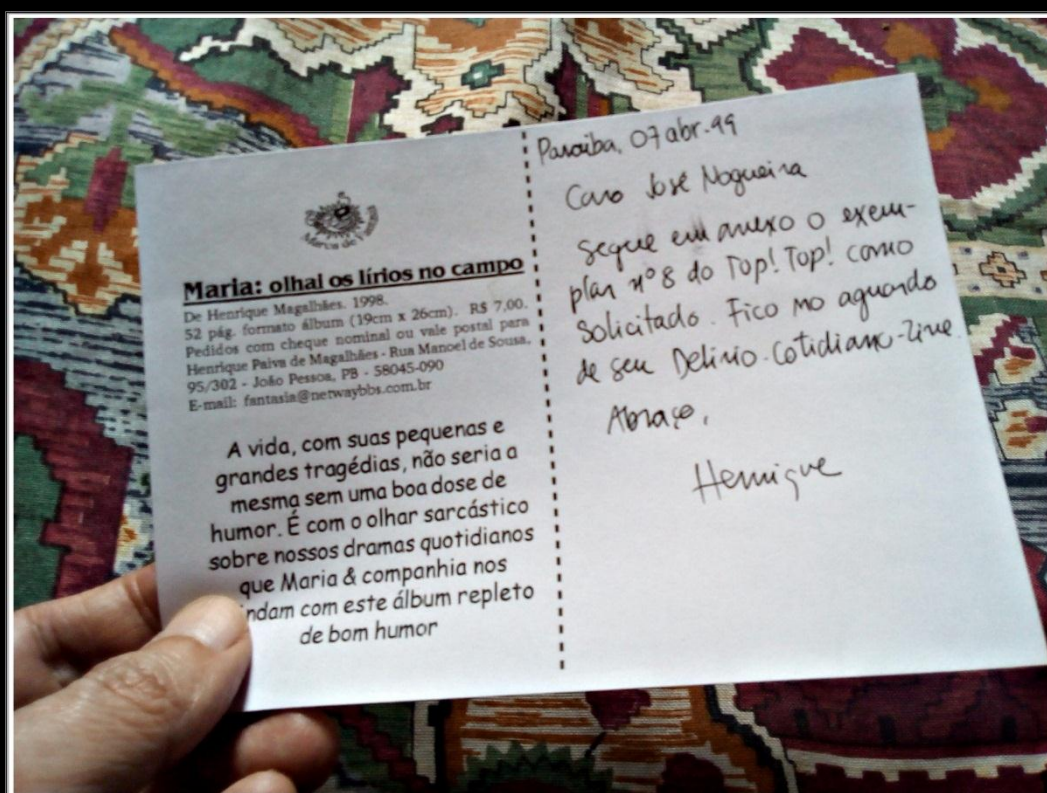 Marca de Fantasia
Maria: olhai os lírios no campo
De Henrique Magalhães. 1998.
52 pág. formato álbum (19cm x 26cm). R$ 7,00.
Pedidos com cheque nominal ou vale postal para
Henrique Paiva de Magalhães - Rua Manoel de Sousa,
95/302 - João Pessoa, PB - 58045-090
E-mail: fantasia@netwaybbs.com.br
A vida, com suas pequenas e
grandes tragédias, não seria a
mesma sem uma boa dose de
humor. É com o olhar sarcástico
sobre nossos dramas quotidianos
que Maria & companhia nos
indam com este álbum repleto
de bom humor
Paraíba, 07 abr. 99
Caro José Nogueira
segue em anexo o exem-
plar nº 8 do Top! Top! como
solicitado. Fico no aguardo
de seu Delírio Cotidiano-Zine.
Abraço,
Henrique